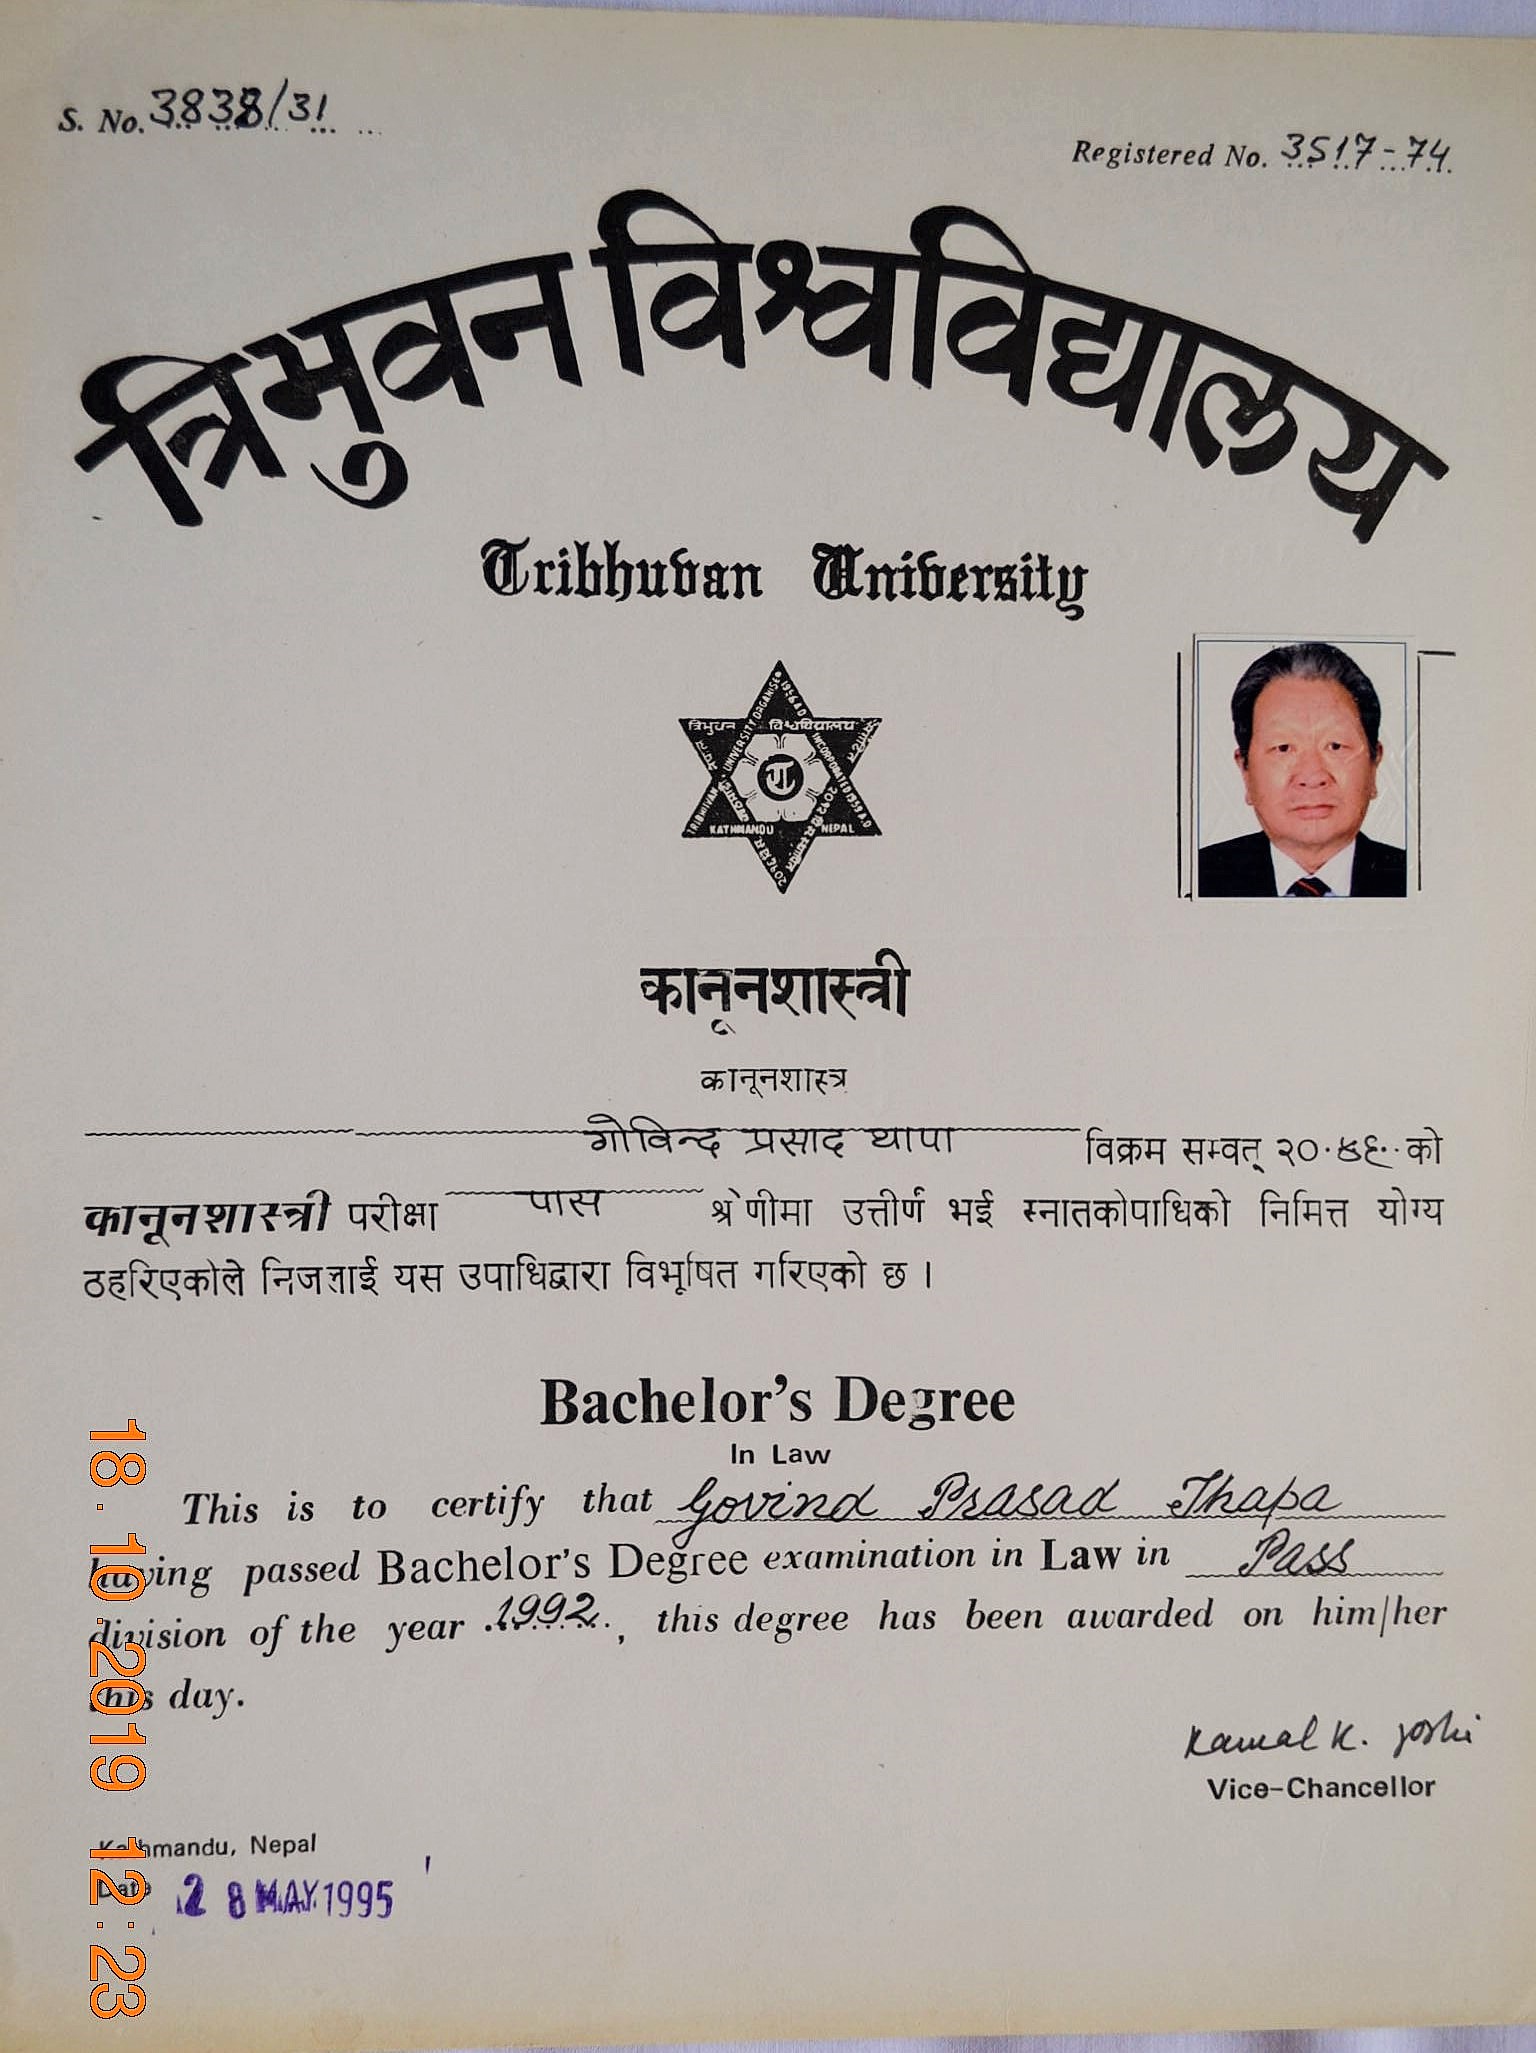 S. No. 3838/31
Registered No. 3517-74
त्रिभुवन विश्वविद्यालय
Tribhuvan University
त्रिभुवन विश्वविद्यालय
KATHMANDU NEPAL
कानूनशास्त्री
कानूनशास्त्र
गोविन्द प्रसाद थापा विक्रम सम्वत् २०४९ को
कानूनशास्त्री परीक्षा पास श्रेणीमा उत्तीर्ण भई स्नातकोपाधिको निमित्त योग्य
ठहरिएकोले निजलाई यस उपाधिद्वारा विभूषित गरिएको छ ।
Bachelor's Degree
In Law
This is to certify that Govind Prasad Thapa
having passed Bachelor's Degree examination in Law in Pass
division of the year 1992, this degree has been awarded on him/her
this day.
Kamal K. Joshi
Vice-Chancellor
Kathmandu, Nepal
Date 28 MAY 1995
18.10.2019 12:23